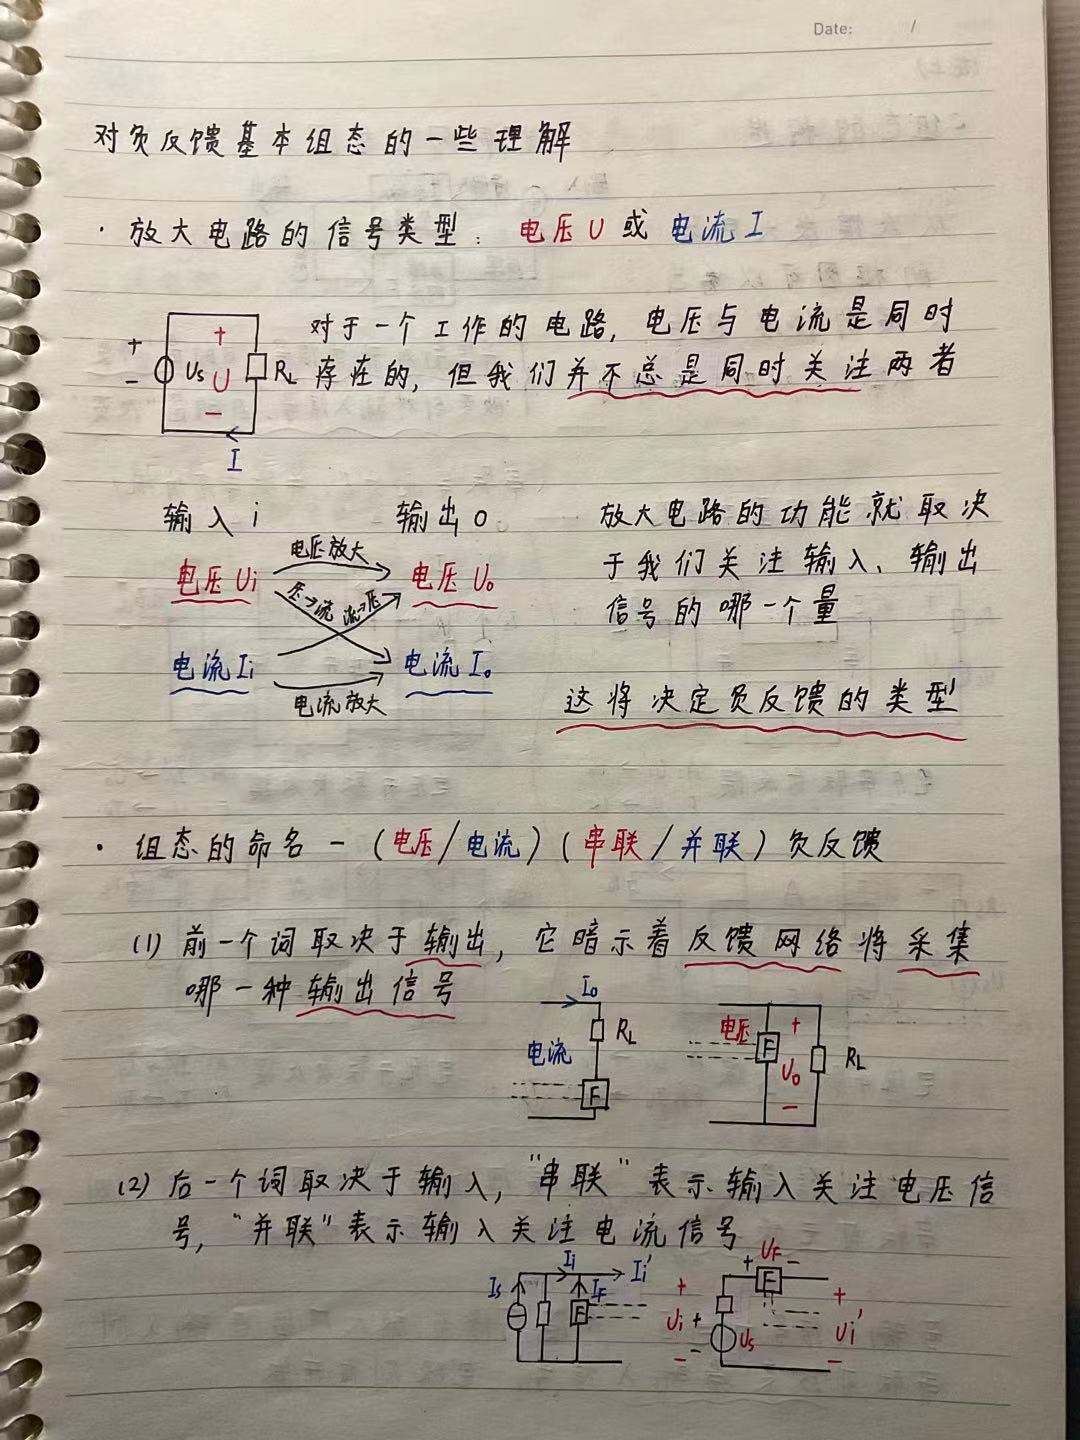 Date: /
对负反馈基本组态的一些理解
· 放大电路的信号类型：电压U或电流I
对于一个工作的电路，电压与电流是同时
存在的，但我们并不总是同时关注两者
+ - Us + U - RL
I
输入i 输出o
电压放大
电压Ui 电压Uo
压→流 流→压
电流Ii 电流Io
电流放大
放大电路的功能就取决
于我们关注输入、输出
信号的哪一个量
这将决定负反馈的类型
· 组态的命名 - (电压/电流)(串联/并联)负反馈
(1) 前一个词取决于输出，它暗示着反馈网络将采集
哪一种输出信号
Io RL 电流 F
电压 F + Uo - RL
(2) 后一个词取决于输入，"串联"表示输入关注电压信
号，"并联"表示输入关注电流信号
Is Ii Ii' IF F
+ UF - F + Ui - + - Us + Ui' -